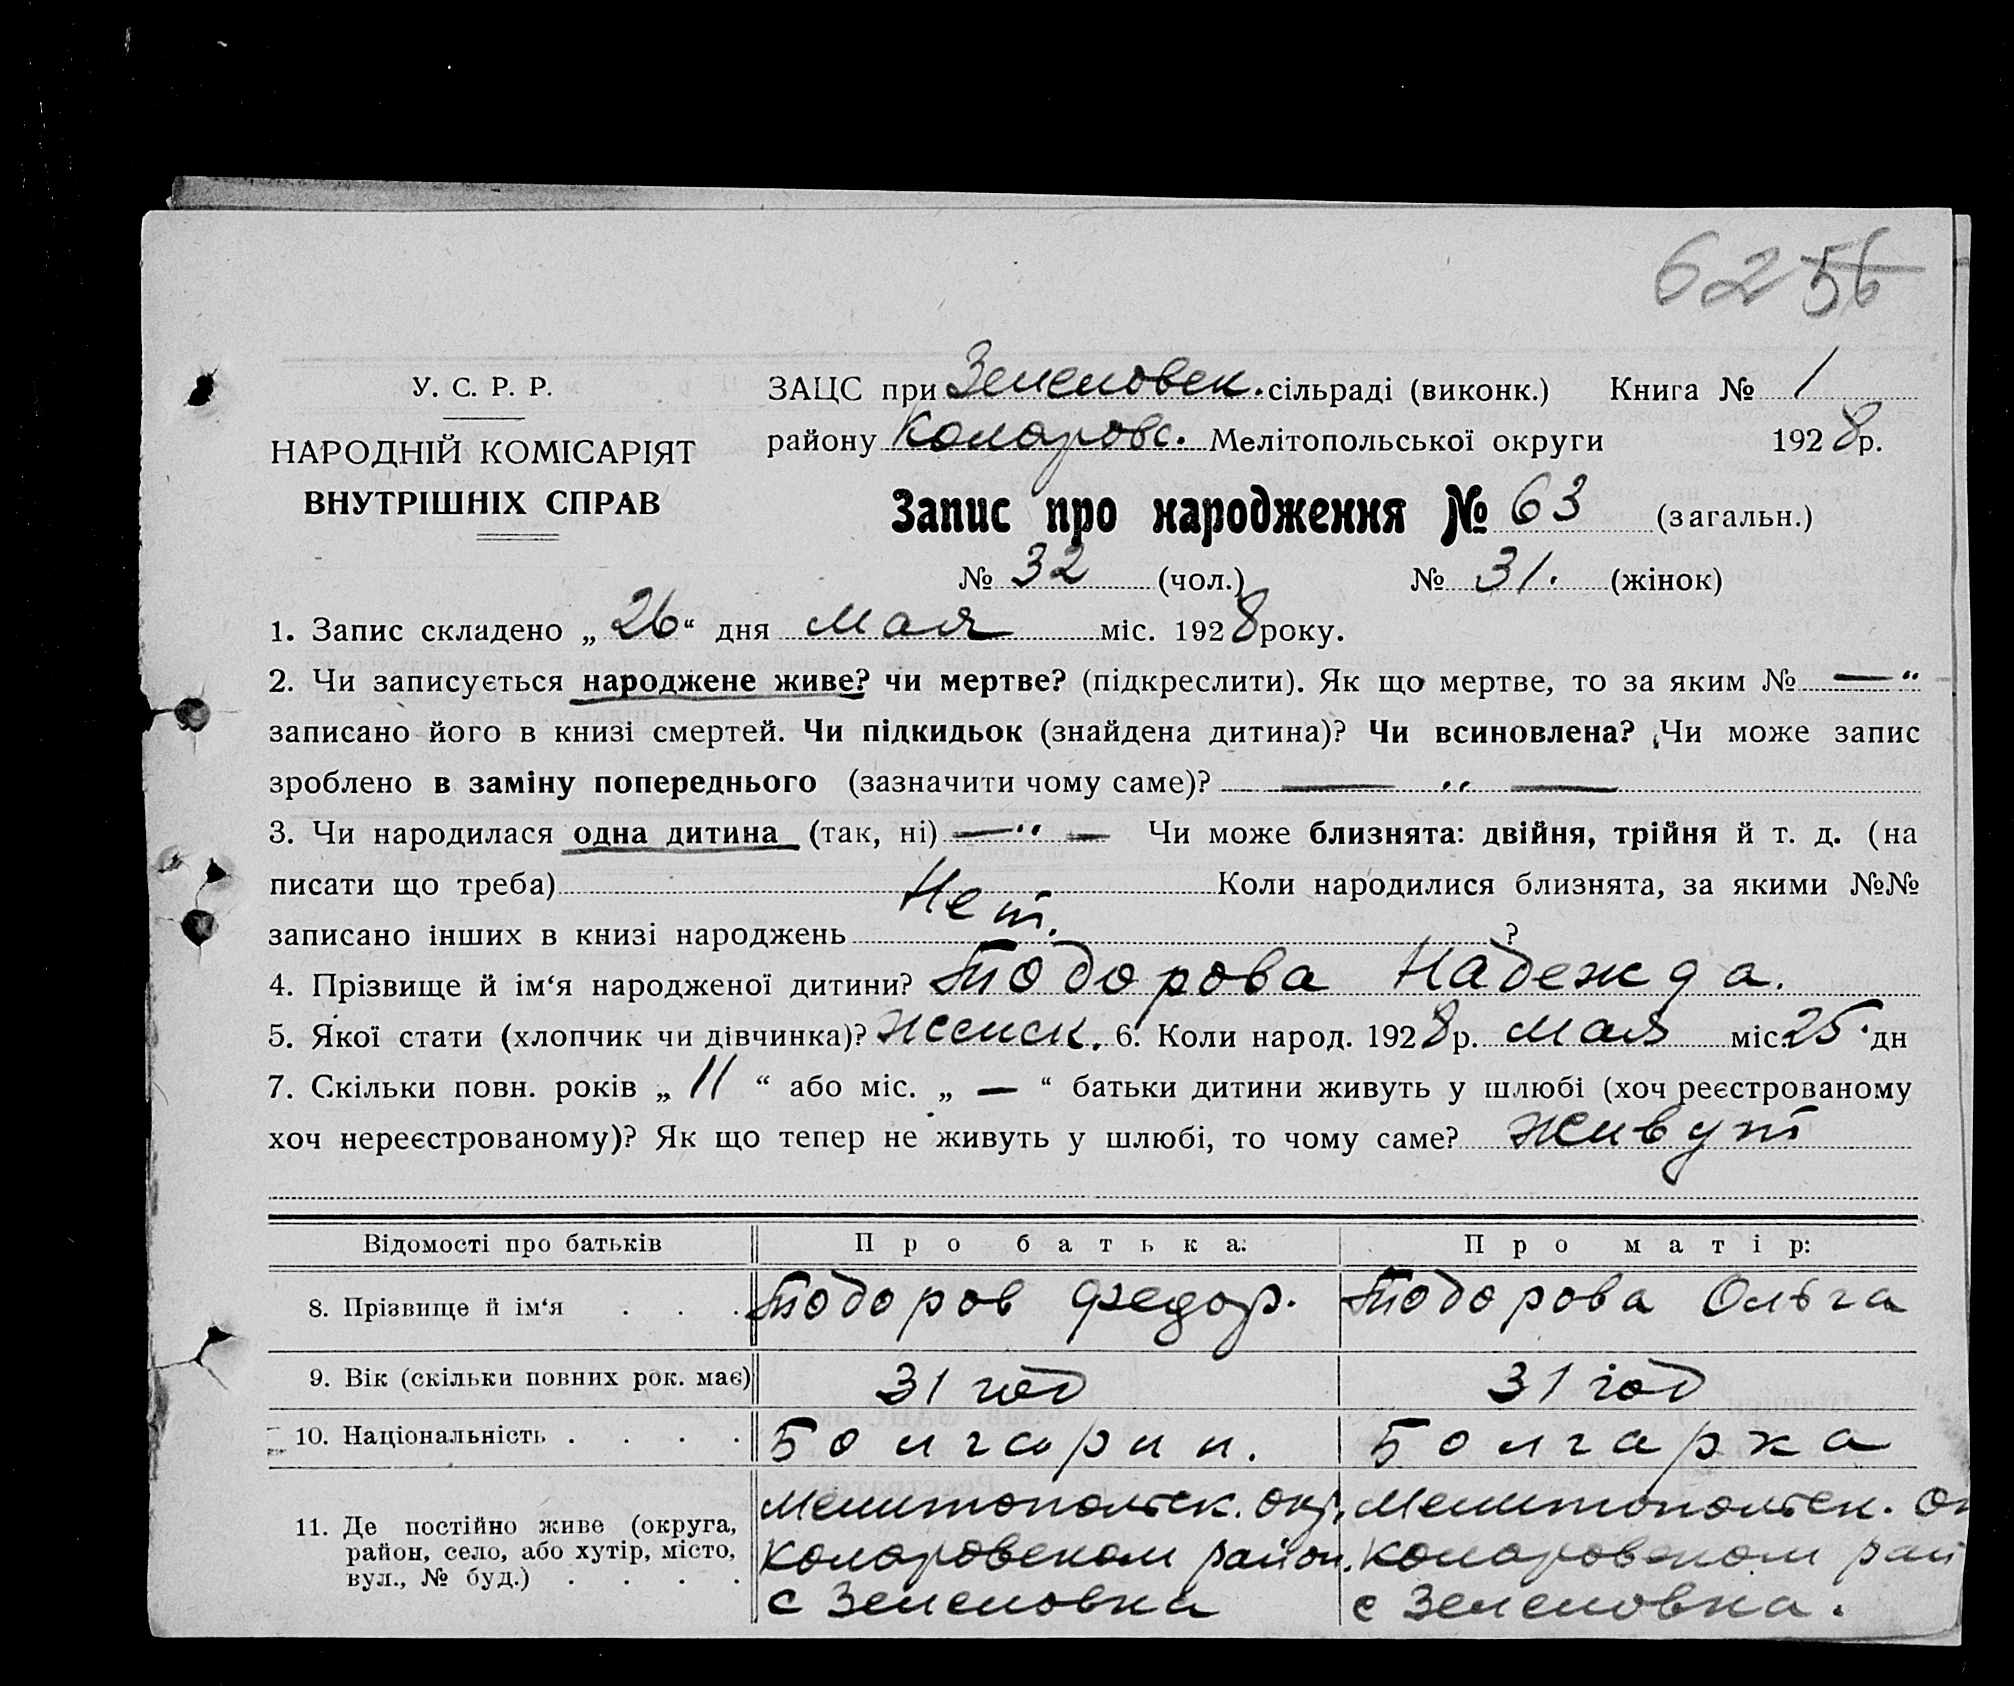 62 56
У. С. Р. Р.
НАРОДНІЙ КОМІСАРІЯТ
ВНУТРІШНІХ СПРАВ
ЗАЦС при Зеленовск. сільраді (виконк.) Книга № 1
району Коларовс. Мелітопольської округи 1928 р.
Запис про народження № 63 (загальн.)
№ 32 (чол.) № 31. (жінок)
1. Запис складено „ 26 “ дня Мая міс. 1928 року.
2. Чи записується народжене живе? чи мертве? (підкреслити). Як що мертве, то за яким № — "
записано його в книзі смертей. Чи підкидьок (знайдена дитина)? Чи всиновлена? Чи може запис
зроблено в заміну попереднього (зазначити чому саме)? — " —
3. Чи народилася одна дитина (так, ні) — " — Чи може близнята: двійня, трійня й т. д. (на
писати що треба) Коли народилися близнята, за якими №№
записано інших в книзі народжень Нет. ?
4. Прізвище й ім‘я народженої дитини? Тодорова Надежда.
5. Якої стати (хлопчик чи дівчинка)? Женск. 6. Коли народ. 1928 р. Мая міс. 25 дн
7. Скільки повн. років „ 11 “ або міс. „ — “ батьки дитини живуть у шлюбі (хоч реєстрованому
хоч нереєстрованому)? Як що тепер не живуть у шлюбі, то чому саме? Живут
Відомості про батьків Про батька: Про матір:
8. Прізвище й ім‘я . . . Тодоров Федор. Тодорова Ольга
9. Вік (скільки повних рок. має) 31 год 31 год
10. Національність . . . . Болгарин. Болгарка
11. Де постійно живе (округа, район, село, або хутір, місто, вул., № буд.) . . . .
Мелитопольск. окр.
Коларовском район.
с Зеленовка
Мелитопольск. ок
Коларовском рай
с Зеленовка.